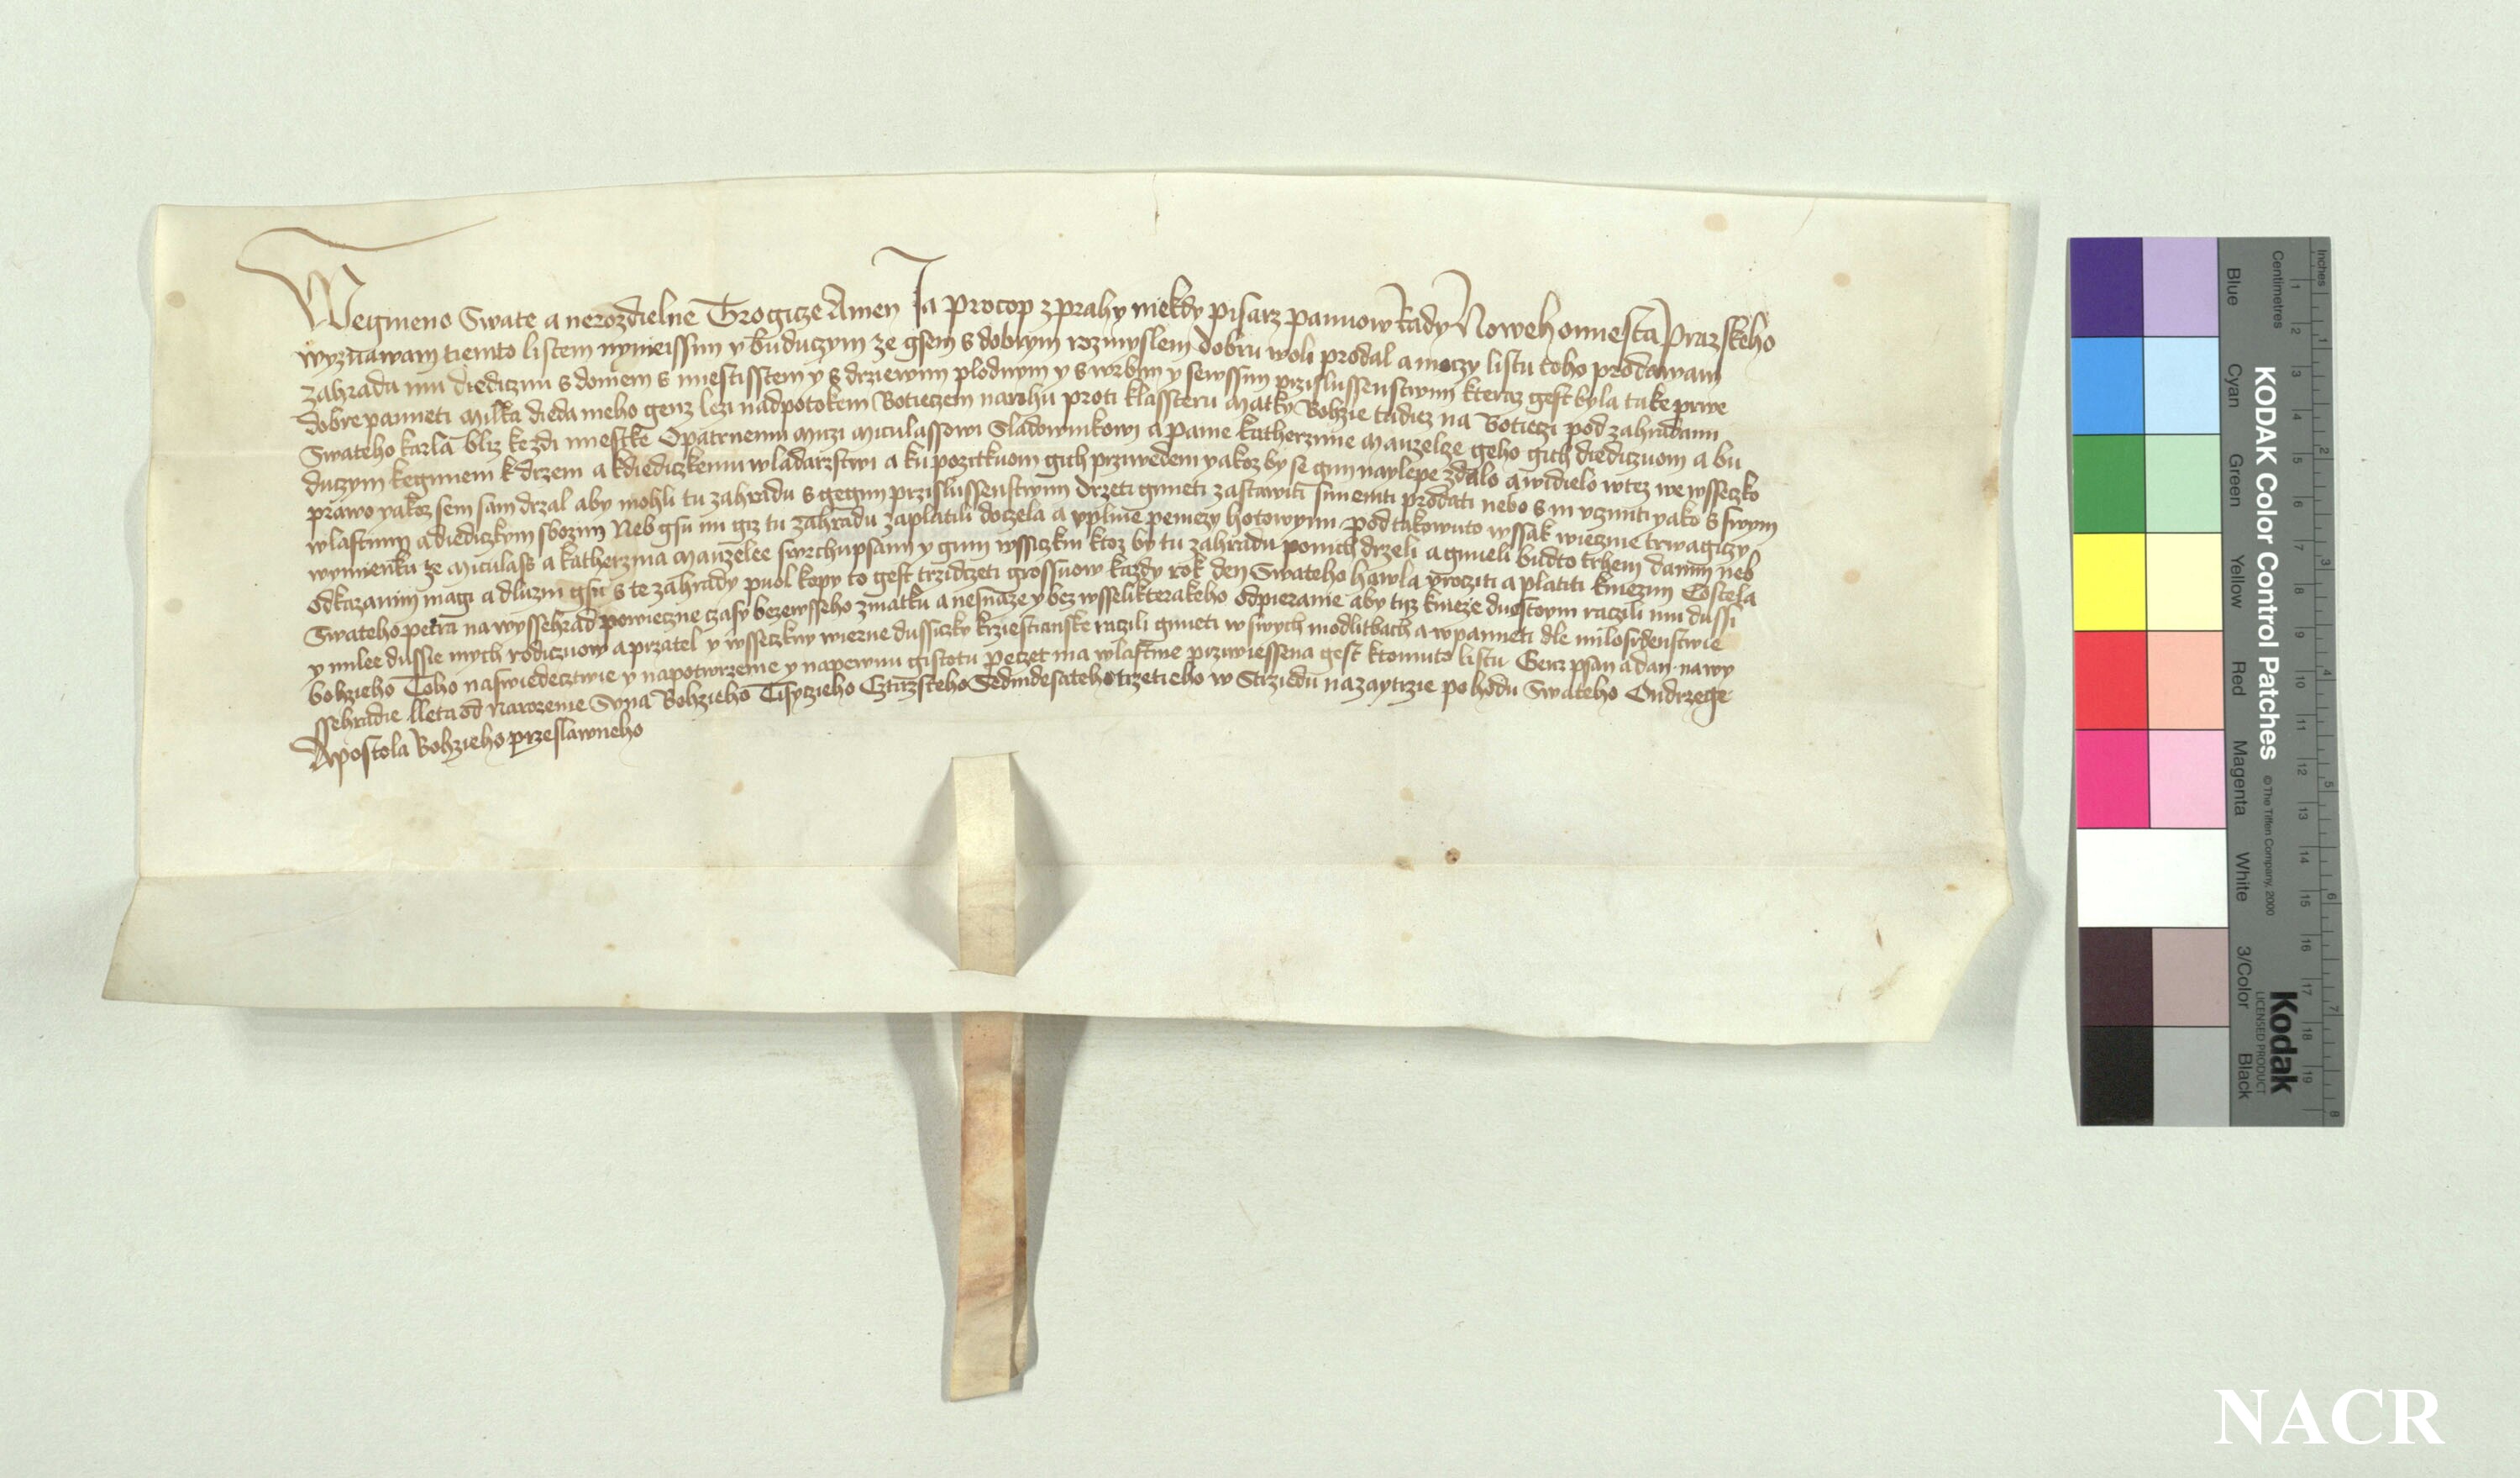 Wegmeno Swate a nerozdielne Trogicze Amen Ja Procop z prahy niekdy pisarz pannow Rady Noweho miesta Prazskeho
wyznawam tiemto listem nyneissim y buduczym ze gsem s dobrym rozmyslem dobru woli prodal a moczy listu toho prodawam
zahradu mu diedicznu s domem s miestisstem y s drziewim plodnym y s wrbim y sewssim przislussenstwim kteraz gest byla take prwe
dobre pameti Milka dieda meho genz lezi nad potokem Boticzem na rohu proti klassteru Matky Bohzie tudiez na Boticzi pod zahradami
Swateho karla bliz ke zdi miestke Opatrnemu muzi Miculassowi Sladownikowi a panie katherzinie Manzelcze geho gich diediczuom a bu
duczym kegmiem k drzeni a k diediczkemu wladarzstwi a ku pozitkuom gich przywedem yakoz by se gim naylepe zdalo a widielo w tez we wsseczko
prawo yakoz sem sam drzal aby mohli tu zahradu s gegim przislussenstwim drzeti gmieti zastawiti smieniti prodati nebo s ni vcziniti yako s swym
wlastnim a diediczkym sbozim Neb gsu mi giz tu zahradu zaplatili doczela a vplnie peniezy hotowymi pod takowuto wssak wiecznie trwagiczy
wymienku ze Miculass a katherzina Manzelee swrchupsani y gini wssiczkni ktoz by tu zahradu po nich drzeli a gmieli budto trhem danim neb
odkazanim magi a dluzni gsu s te zahrady puol kopy to gest trzidczeti grossuow kazdy rok den Swateho hawla vrocziti a platiti kniezim Costela
Swateho petra na wyssehrad powieczne czasy bezewsseho zmatku a nesnaze y bez wsselikterakeho odpieranie aby tiz knieze duostoyni raczili mu dussi
y milee dussie mych rodiczuow a przatel y wsseczkny wierne dussiczky krziestianske raczili gmieti w swych modlitbach a w pameti dle milosrdenstwie
bohzieho Toho na swiedecztwie y na potwrzenie y na pewnu gistotu Peczet ma wlastnie przywiessena gest k tomuto listu Genz psan a dan na wy
ssehradie lleta od Narozenie Syna Bohzieho Tisyczieho Cztirzsteho Sedmdesateho trzetieho w Strziedu nazaytrzie po hodu Swateho Ondrzege
Apostola Bohzieho przeslawneho
KODAK Color Control Patches
© The Tiffen Company, 2000
Kodak
LICENSED PRODUCT
Inches 1 2 3 4 5 6 7 8
Centimetres 1 2 3 4 5 6 7 8 9 10 11 12 13 14 15 16 17 18 19
Blue Cyan Green Yellow Red Magenta White 3/Color Black
NACR